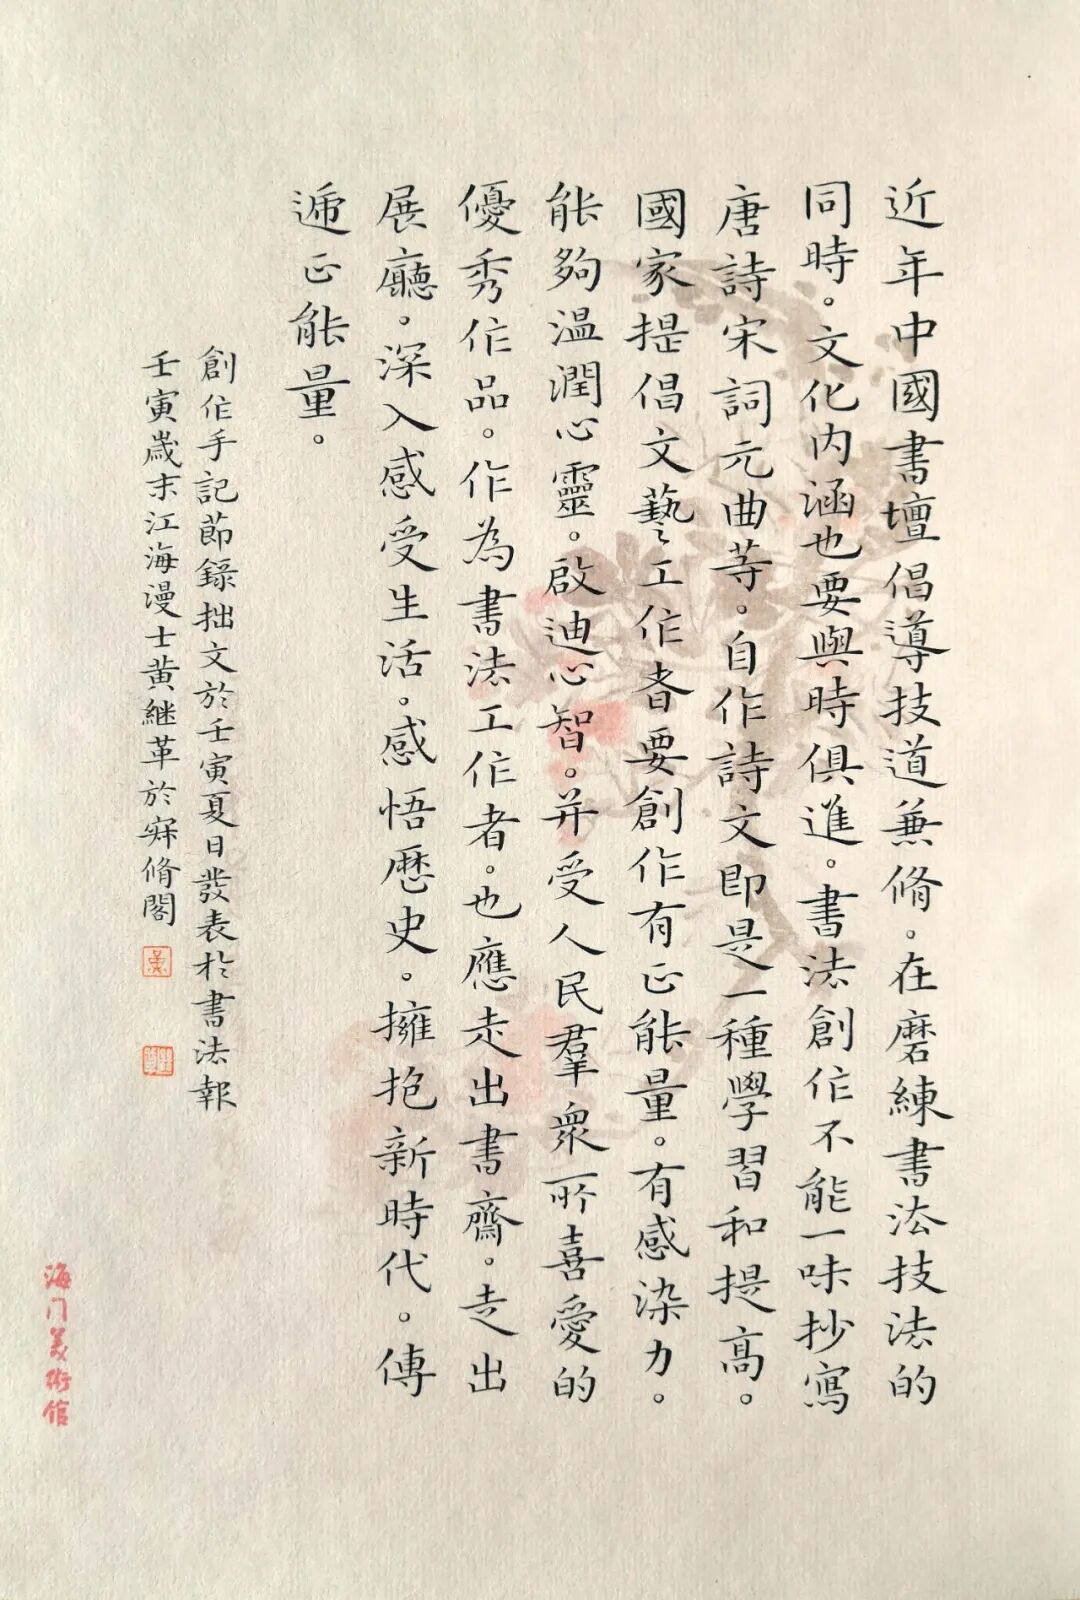 近年中國書壇倡導技道兼脩。在磨練書法技法的
同時。文化内涵也要與時俱進。書法創作不能一味抄寫
唐詩宋詞元曲等。自作詩文即是一種學習和提高。
國家提倡文藝工作者要創作有正能量。有感染力。
能夠温潤心靈。啟迪心智。并受人民羣衆所喜愛的
優秀作品。作為書法工作者。也應走出書齋。走出
展廳。深入感受生活。感悟歷史。擁抱新時代。傳
遞正能量。
創作手記節錄拙文於壬寅夏日發表於書法報
壬寅歲末江海漫士黄継革於寀脩閣
海门美術館